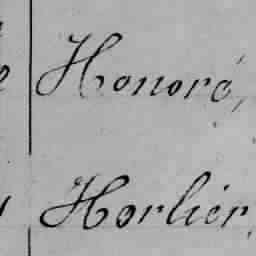 Honoré,
Horlier,